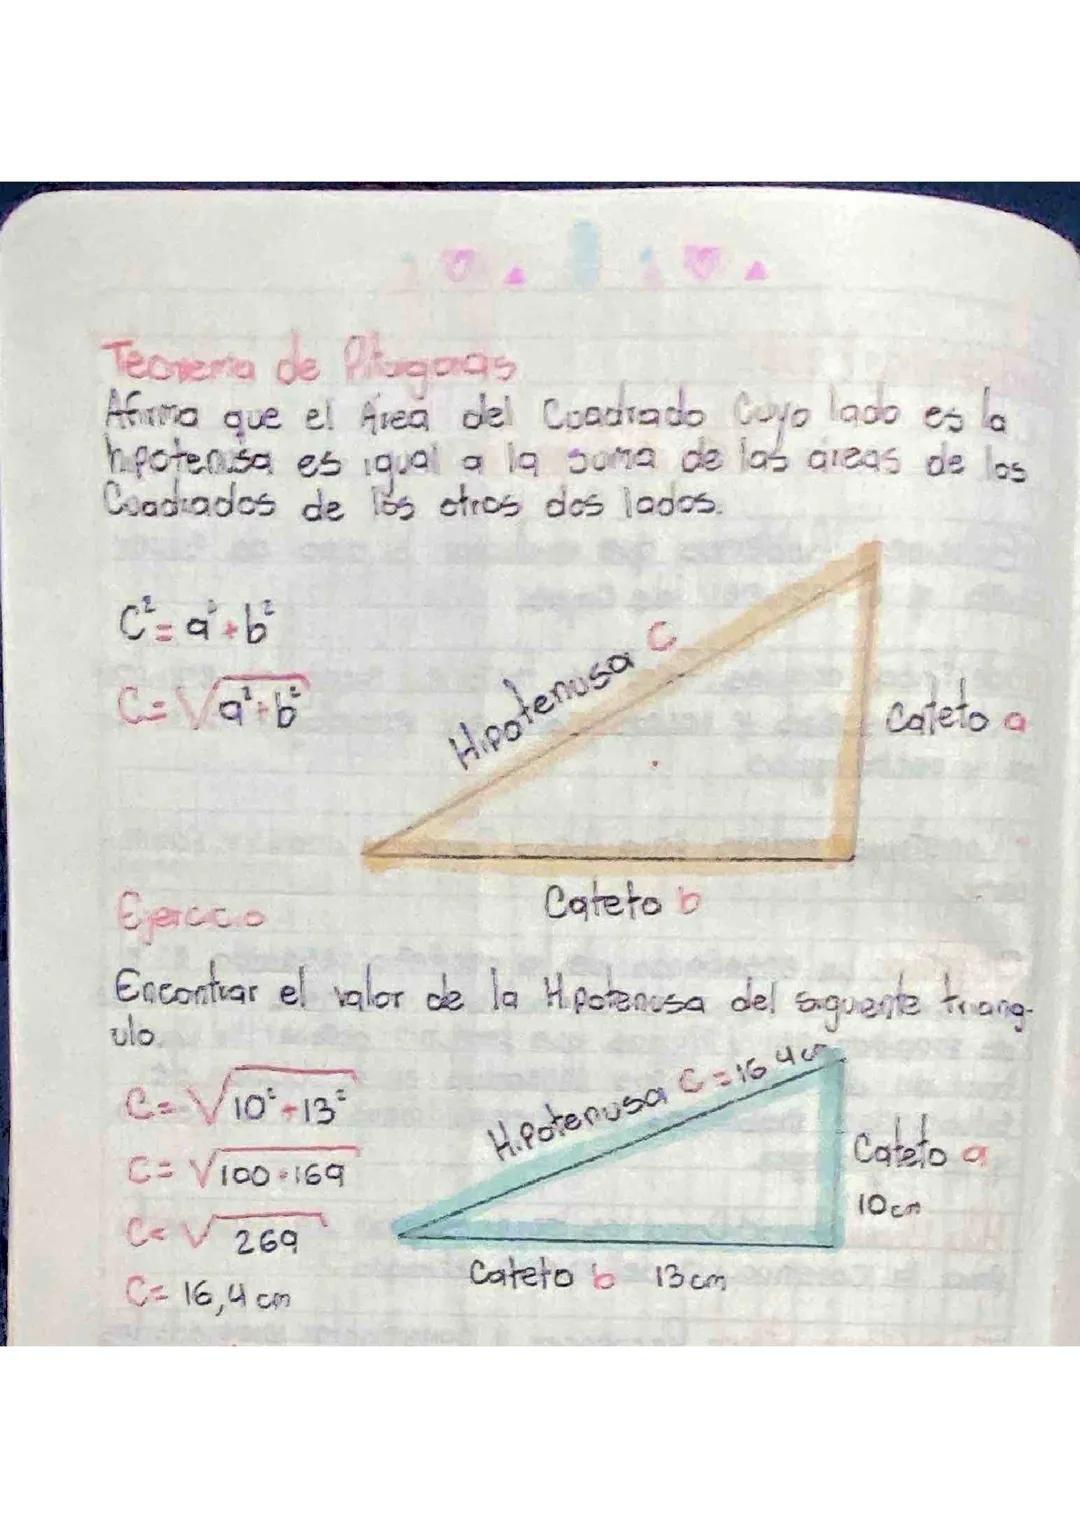 Teorema de Pitagoras
Afirma que el Área del Cuadrado Cuyo lado es la
hipotenusa es igual a la suma de las áreas de los
Cuadrados de los otros dos lados.
C² = a² + b²
C = √a² + b²
Hipotenusa C
Cateto a
Cateto b
Ejercicio
Encontrar el valor de la Hipotenusa del siguiente triang-
ulo.
C = √10² + 13²
C = √100 + 169
C = √269
C = 16,4 cm
Hipotenusa C = 16 4 cm
Cateto a
10 cm
Cateto b 13 cm